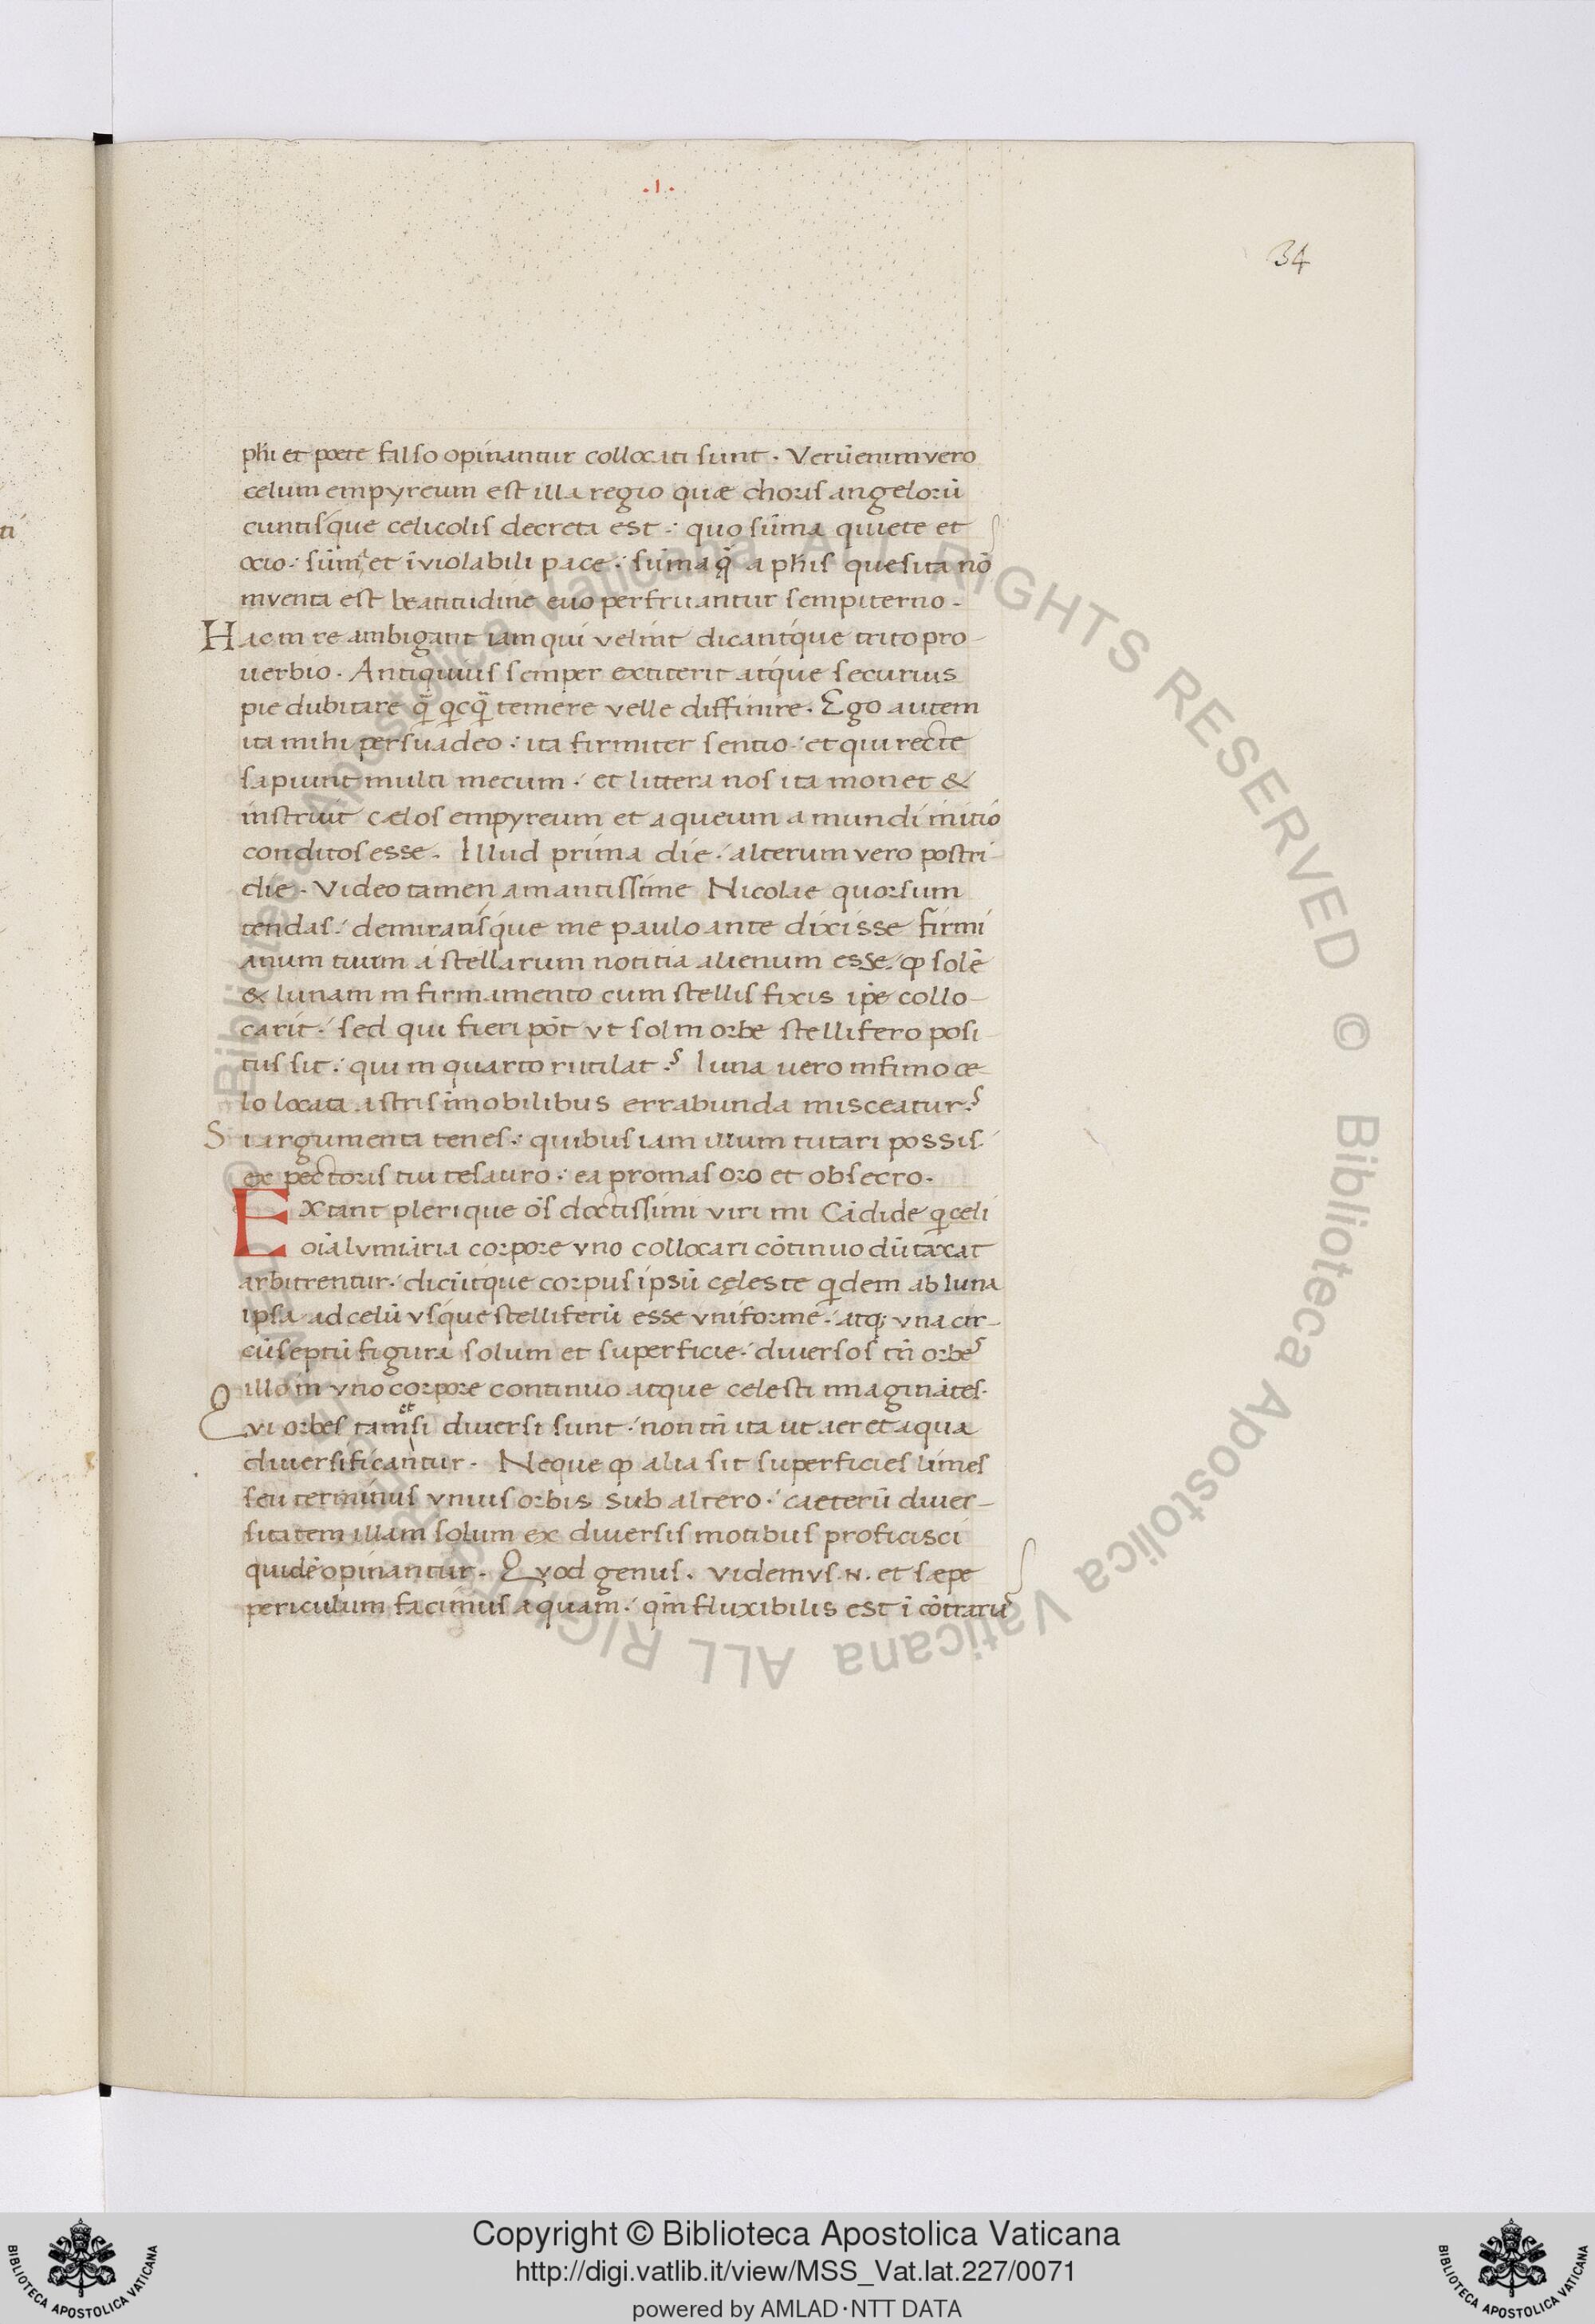 .I.
34
phi et poete falso opinantur collocati sunt. Verūenimvero
celum empyreum est illa regio quæ choris angelorū
cuntisque celicolis decreta est: quo sūma quiete et
ocio: sūma et īviolabili pace: sūmaq̄ a phis quesita nō
inventa est beatitudine euo perfruantur sempiterno.
Hac in re ambigant iam qui velint dicantque trito pro-
uerbio. Antiquius semper extiterit atque securius
pie dubitare q̄ qcq̄ temere velle diffinire. Ego autem
ita mihi persuadeo: ita firmiter sentio: et qui recte
sapiunt multi mecum: et littera nos ita monet &
instruit cælos empyreum et aqueum a mundi initio
conditos esse. Illud prima die: alterum vero postri-
die. Video tamen amantissime Nicolae quorsum
tendas: demiratisque me paulo ante dixisse firmi
anum tuum a stellarum notitia alienum esse: ꝙ solē
& lunam in firmamento cum stellis fixis ipē collo-
carit: sed qui fieri pōt vt sol in orbe stellifero posi-
tus sit: qui in quarto rutilat? luna uero infimo cæ-
lo locata astris īmobilibus errabunda misceatur?
Si argumenta tenes: quibus iam illum tutari possis
ex pectoris tui tesauro: ea promas oro et obsecro.
Extant plerique oēs doctissimi viri mi Cādide q celi
oīa lvmīaria corpore vno collocari cōtinuo dūtaxat
arbitrentur: dicūtque corpus ipsū cęleste qdem ab luna
ipsa ad celū vsque stelliferū esse vniformē: atq; vna cir-
cūseptū figura solum et superficie: diuersos tn̄ orbes
illo in vno corpore continuo atque celesti imaginātes.
Qvi orbes tametsi diuersi sunt: non tn̄ ita ut aer et aqua
diuersificantur. Neque ꝙ alia sit superficies limes
seu terminus vnius orbis sub altero: cæterū diuer-
sitatem illam solum ex diuersis motibus proficisci
quidē opinantur. Qvod genus. videmvs .N. et sæpe
periculum facimus aquam: qm̄ fluxibilis est ī cōtrariū